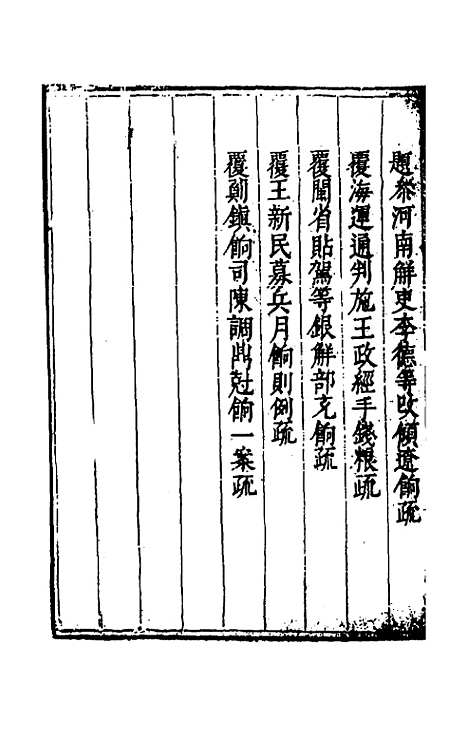 題參河南解吏李德等改領遼餉疏
覆海運通判施王政經手錢粮疏
覆閩省貼駕等銀解部充餉疏
覆王新民募兵月餉則例疏
覆鄖鎮餉司陳調鼎尅餉一案疏